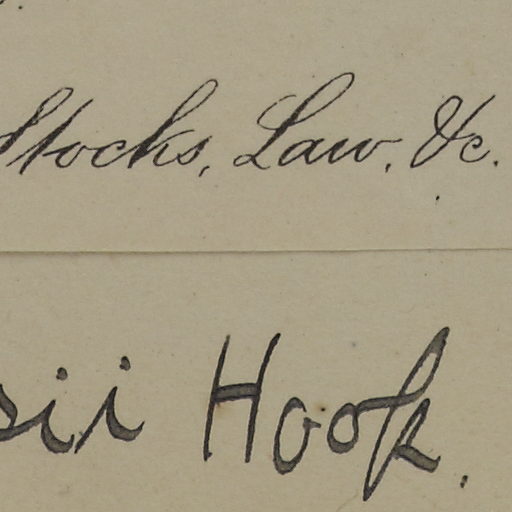 Stocks, Law, &c.
sii Hook.